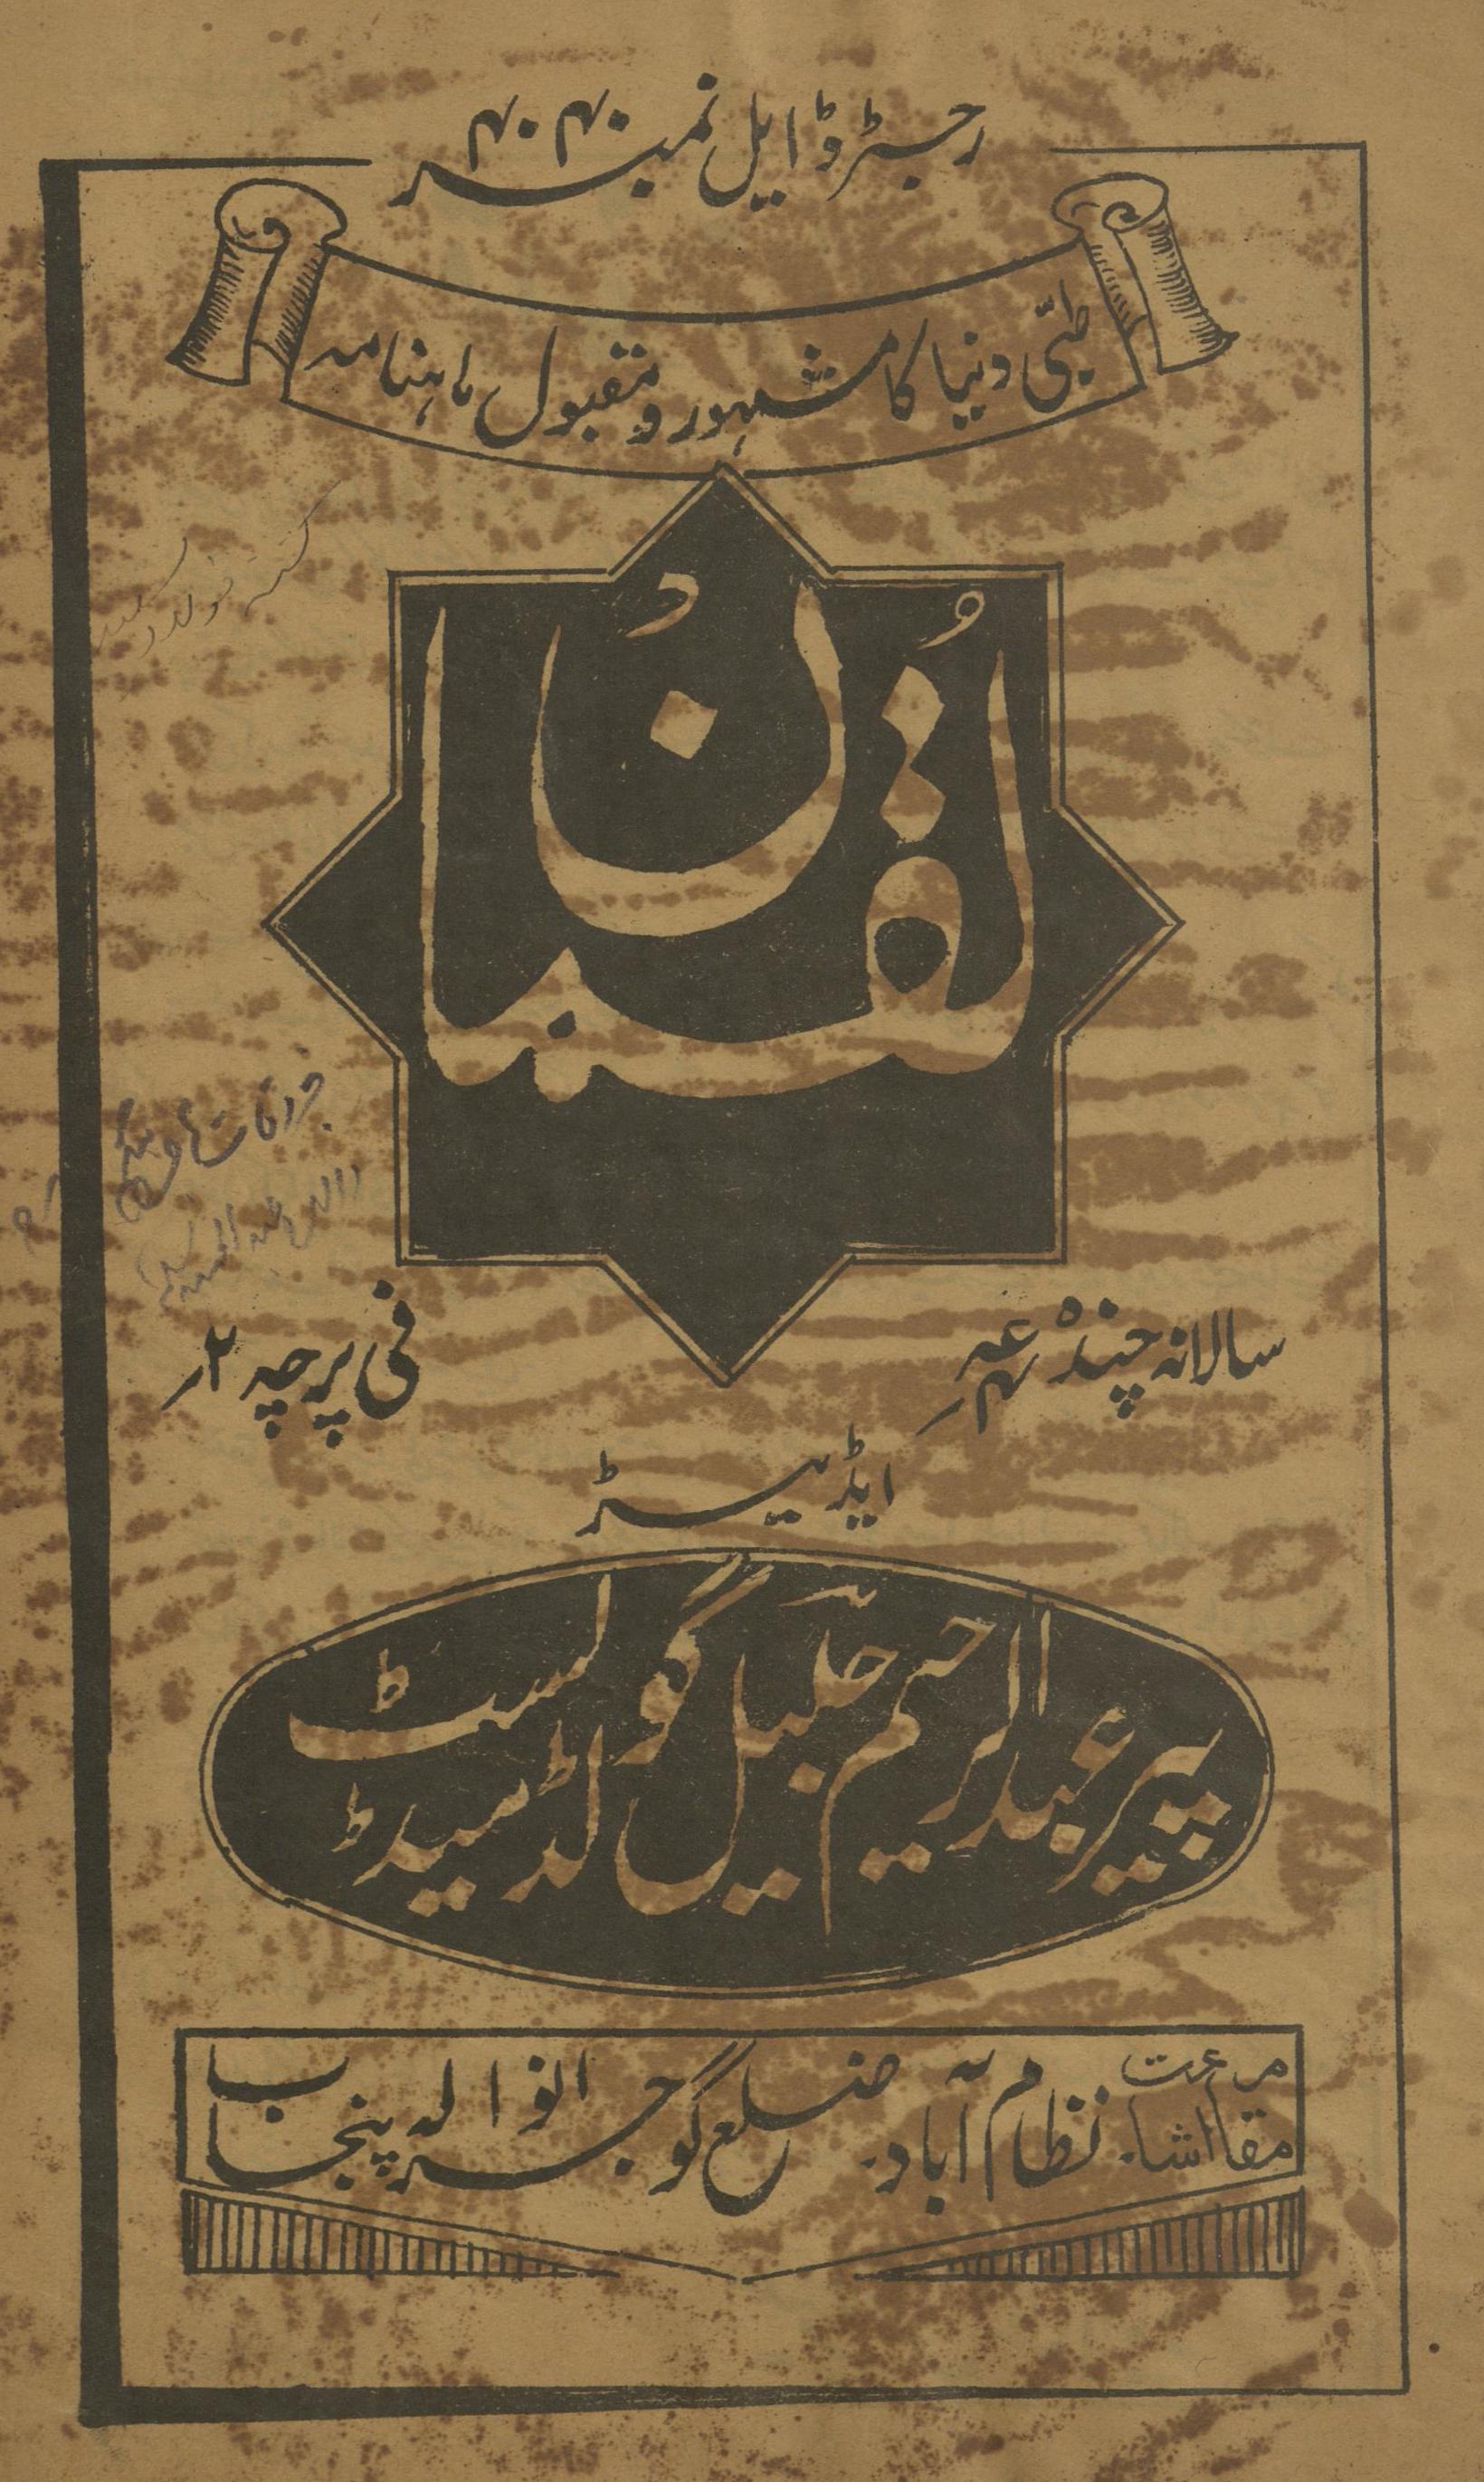 رجسٹرڈ ایل نمبر ۴۰۴۰
طبّی دنیا کا مشہور و مقبول ماہنامہ
لُقمان
سالانہ چندہ
فی پرچہ ۲ر
ایڈیٹر
پیر عبدالرحیم جمیل گولڈ میڈلسٹ
مقام اشاعت نظام آباد۔ ضلع گوجرانوالہ پنجاب